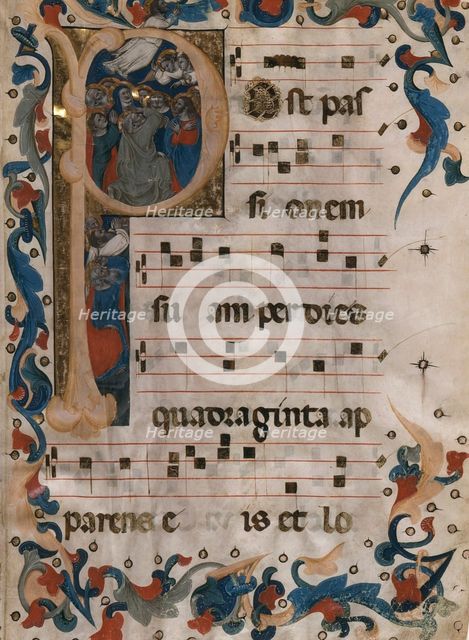 Post pas
sionem
suam per dies
quadraginta ap
parens eis et lo
Heritage
Heritage
Heritage
Heritage
Heritage
Heritage